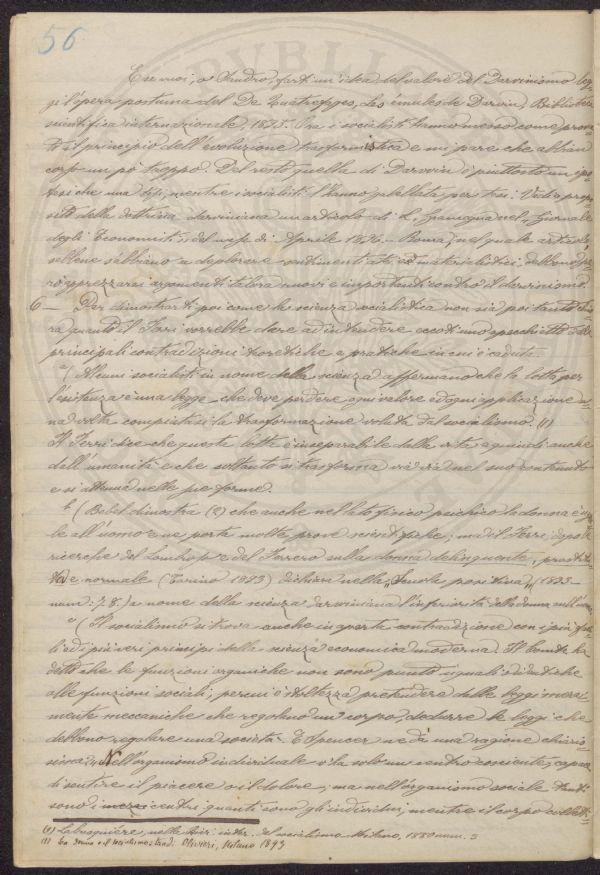 56
E se vuoi, o Sandro, farti un'idea del valore del Darvinismo leg-
gi l'opera postuma del De Quatrefages, Les émules de Darwin, Bibliothèque
scientifica internazionale, 1895. Ora i socialisti hanno messo come prova-
to il principio dell'evoluzione trasformistica e mi pare che abbian
corso un pò troppo. Del resto quella di Darwin è piuttosto un ipo-
tesi che una tesi, mentre i socialisti l'hanno gabellata per tesi. Vedi a propo-
sito della dottrina darviniana un articolo di L. nel "Giornale
degli Economisti" del mese di Aprile 1896 - Roma, nel quale articolo
sebbene s'abbiano a deplorare sentimenti atei e materialistici, debbono pe-
rò apprezzarsi argomenti talora nuovi e importanti contro il darvinismo.
6 - Per dimostrarti poi come la scienza socialistica non sia poi tanto chia-
ra quanto il Ferri vorrebbe dare ad intendere eccoti uno specchietto delle
principali contradizioni teoretiche e pratiche in cui è caduta.
a) Alcuni socialisti in nome della scienza affermano che la lotta per
l'esistenza è una legge che deve perdere ogni valore ed ogni applicazione u-
na volta compiutasi la trasformazione voluta dal socialismo. (1)
Il Ferri dice che questa lotta è inseparabile dalla vita e quindi anche
dall'umanità e che soltanto si trasforma via via nel suo contenuto
e si attenua nelle sue forme.
b) Bebel dimostra (2) che anche nel lato fisico psichico la donna è ugua-
le all'uomo e ne porta molte prove scientifiche; ma il Ferri, dopo le
ricerche del Lombroso e del Ferrero sulla donna delinquente, prostitu-
ta e normale (Torino 1893) dichiara nella "Scuola positiva" (1893
num: 7, 8.) a nome della scienza darviniana l'inferiorità della donna sull'uomo.
c) Il socialismo si trova anche in aperta contradizione con i più
ed i più veri principi della scienza economica moderna. Il Comte ha
detto che le funzioni organiche non sono punto uguali od identiche
alle funzioni sociali; per cui è stoltezza pretendere dalle leggi mera-
mente meccaniche che regolano un corpo, dedurre le leggi che
debbono regolare una società. E Spencer ne dà una ragione chiaris-
sima: "Nell'organismo individuale v'ha solo un centro cosciente, capace
di sentire il piacere o il dolore; ma nell'organismo sociale tanti
sono i centri quanti sono gli individui, mentre il corpo colletti-
(1) Labusquière, nella Riv. inter. del socialismo Milano, 1880 num. 3
(2) La donna e il socialismo, trad. Olivieri, Milano 1893